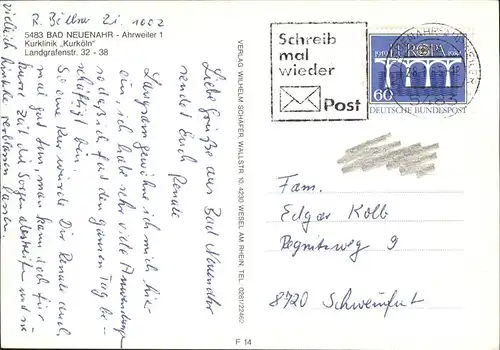 R. Bellner Zi. 1002
5483 BAD NEUENAHR - Ahrweiler 1
Kurklinik „Kurköln"
Landgrafenstr. 32 - 38
Liebe Grüße aus Bad Neuenahr
sendet Euch Renate
Langsam gewöhne ich mich hier
ein, ich habe sehr viele Anwendungen
sodaß ich fast den ganzen Tag be-
schäftigt bin.
So eine Kur würde Dir Renate auch
mal gut tun, man kann doch für
kurze Zeit die Sorgen abstreifen und sie
vielleicht hinter verblassen lassen.
VERLAG WILHELM SCHÄFER, WALLSTR. 10, 4230 WESEL AM RHEIN, TEL. 0281/22462
F 14
Schreib
mal
wieder
Post
EUROPA
60
DEUTSCHE BUNDESPOST
5483
Fam.
Edgar Kolb
Pegnitzweg 9
8720 Schweinfurt